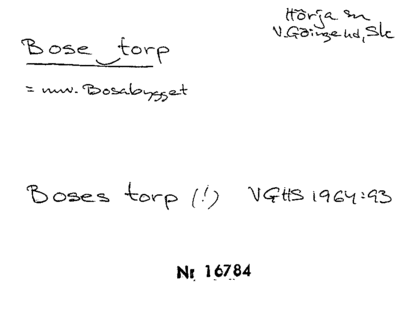 Hörja sn
V. Göinge hd, Sk
Bose torp
= nuv. Bosabygget
Boses torp (!) VGHS 1964:93
Nr 16784